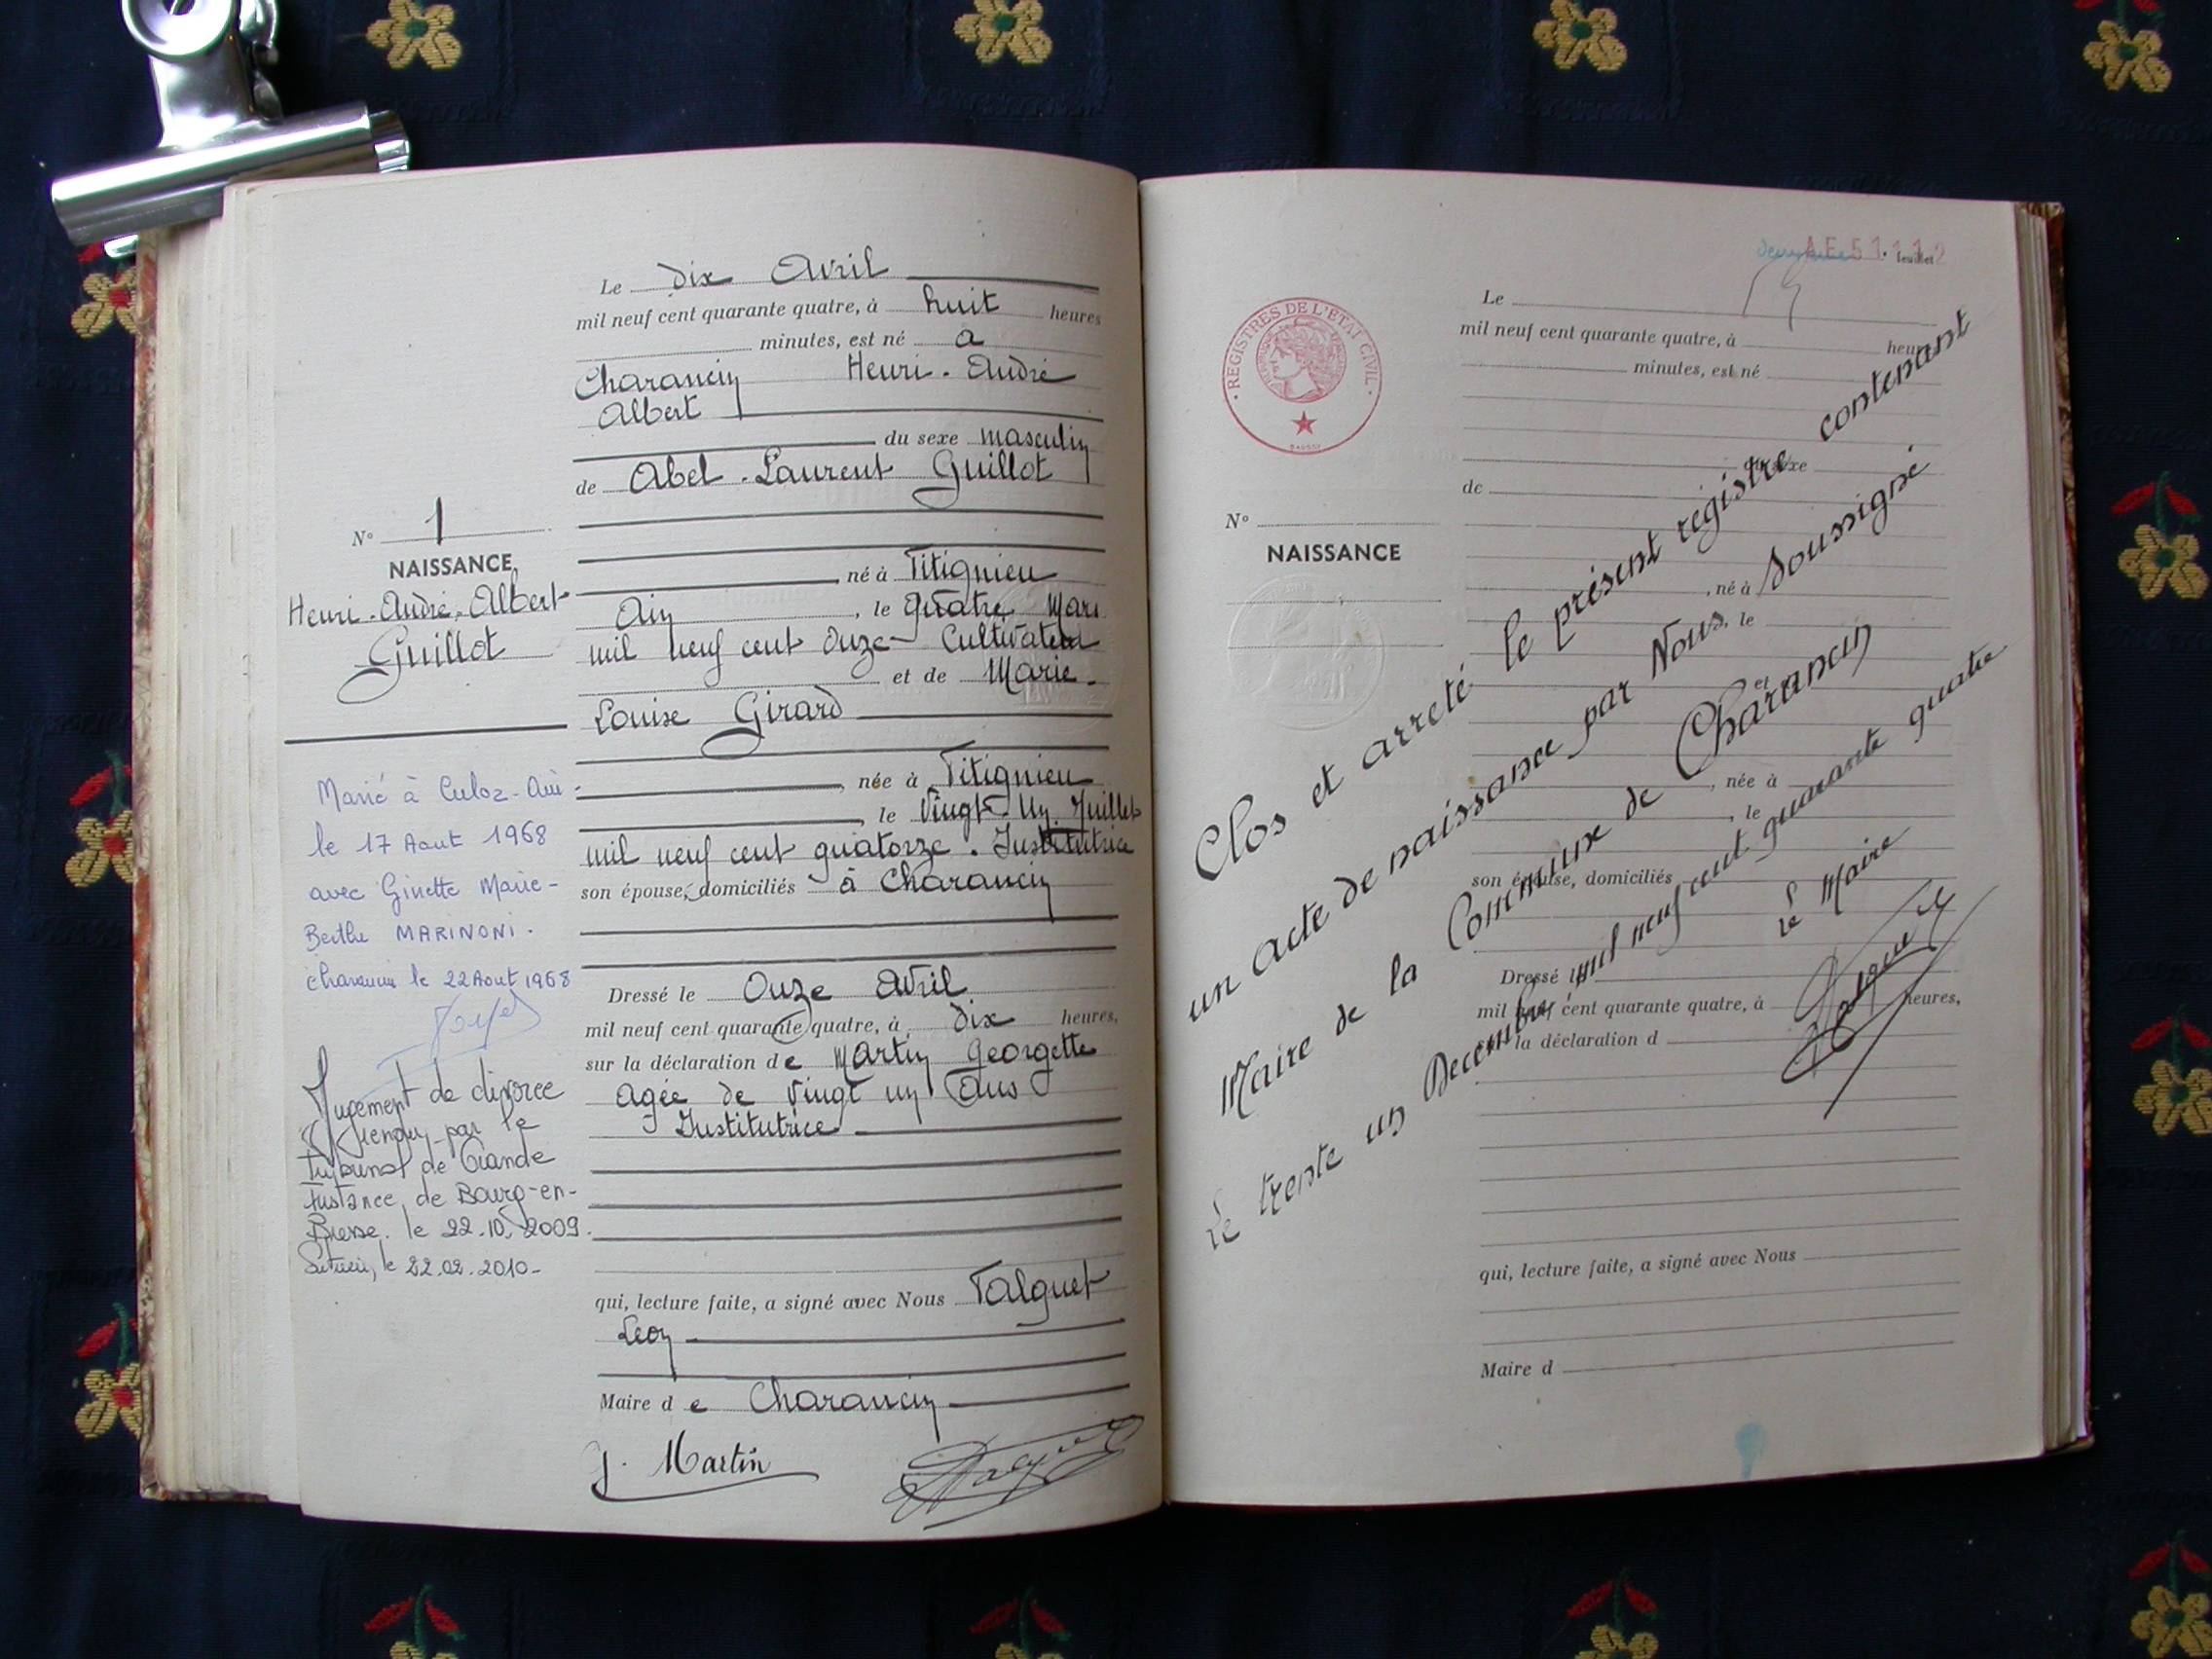 Le dix Avril
mil neuf cent quarante quatre, à huit heures
minutes, est né a
Charancin Henri. André
Albert
du sexe masculin
de Abel. Laurent Guillot
né à Titignieu
Ain, le quatre Mars
mil neuf cent onze Cultivateur
et de Marie.
Louise Girard
née à Titignieu
le Vingt-Un Juillet
mil neuf cent quatorze. Institutrice
son épouse, domiciliés à Charancin
Dressé le Onze Avril
mil neuf cent quarante quatre, à dix heures,
sur la déclaration de Martin Georgette
agée de vingt un ans
Institutrice
qui, lecture faite, a signé avec Nous Talguet
Leon
Maire de Charancin
J. Martin
N° 1
NAISSANCE
Henri. André. Albert
Guillot
Marié à Culoz-Ain.
le 17 Aout 1968
avec Ginette Marie-
Berthe MARINONI.
Charancin le 22 Aout 1968
Jugement de divorce
rendu par le
Tribunal de Grande
Instance de Bourg-en-
Bresse. le 22.10.2009.
le 22.02.2010-
feuillet
REGISTRES DE L'ETAT CIVIL
N°
NAISSANCE
Le
mil neuf cent quarante quatre, à heures
minutes, est né
du sexe
de
, né à
, le
et
, née à
, le
son épouse, domiciliés
Dressé le
mil neuf cent quarante quatre, à heures,
sur la déclaration d
qui, lecture faite, a signé avec Nous
Maire d
Clos et arreté le présent registre contenant
un acte de naissance par Nous, Soussigné
Maire de la Commune de Charancin
le trente un Decembre mil neuf cent quarante quatre
le Maire